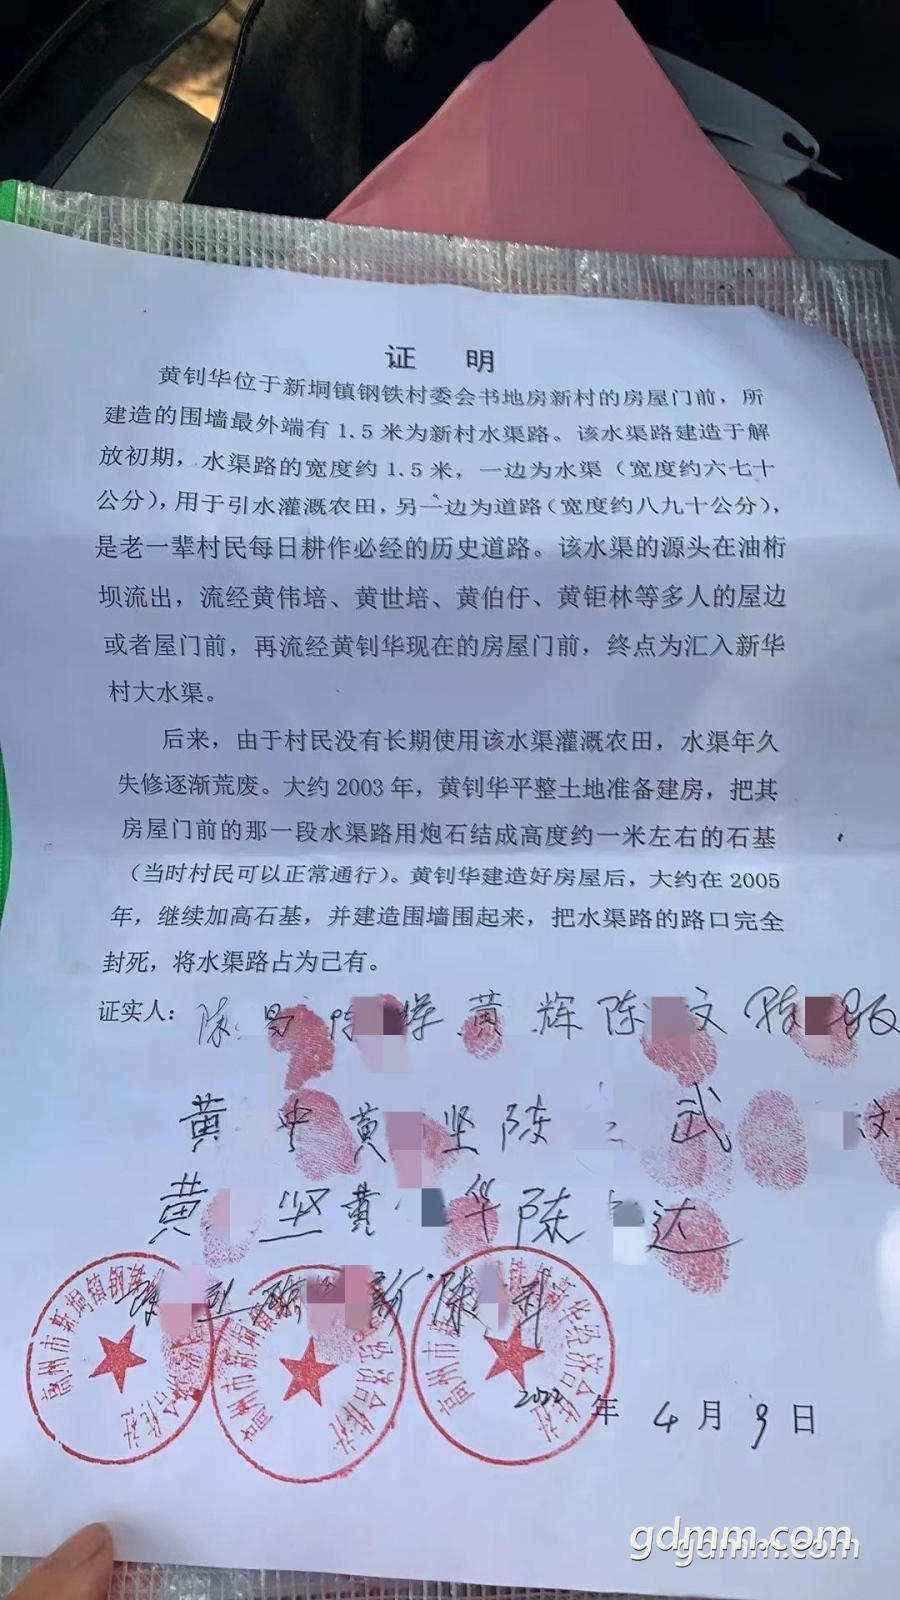 证 明
黄钊华位于新垌镇钢铁村委会书地房新村的房屋门前，所
建造的围墙最外端有 1.5 米为新村水渠路。该水渠路建造于解
放初期，水渠路的宽度约 1.5 米，一边为水渠（宽度约六七十
公分），用于引水灌溉农田，另一边为道路（宽度约八九十公分），
是老一辈村民每日耕作必经的历史道路。该水渠的源头在油桁
坝流出，流经黄伟培、黄世培、黄伯仔、黄钜林等多人的屋边
或者屋门前，再流经黄钊华现在的房屋门前，终点为汇入新华
村大水渠。
后来，由于村民没有长期使用该水渠灌溉农田，水渠年久
失修逐渐荒废。大约 2003 年，黄钊华平整土地准备建房，把其
房屋门前的那一段水渠路用炮石结成高度约一米左右的石基
（当时村民可以正常通行）。黄钊华建造好房屋后，大约在 2005
年，继续加高石基，并建造围墙围起来，把水渠路的路口完全
封死，将水渠路占为己有。
证实人：陈 黄 辉 陈 文
黄 中 黄 坚 陈 武
黄 坚 黄 华 陈 达
新 陈
高州市新垌镇钢 合作社
高州市新垌镇 经济合作社
高州市新 新华经济合作社
2022 年 4 月 9 日
gdmm.com
gdmm.com